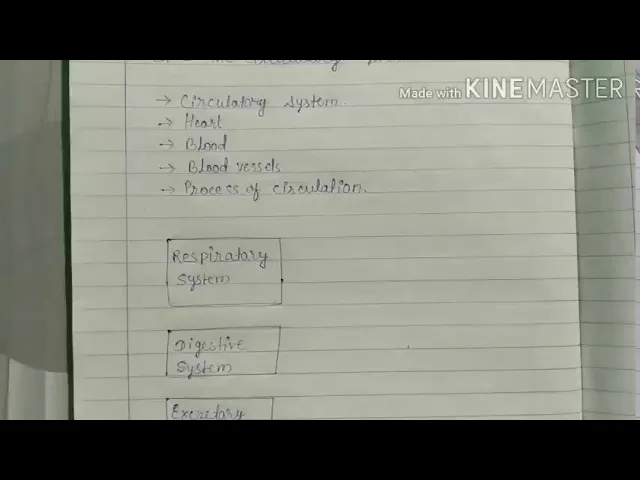 Made with KINEMASTER
→ Circulatory System.
→ Heart
→ Blood
→ Blood vessels
→ Process of circulation.
Respiratory
System
Digestive
System
Excretory